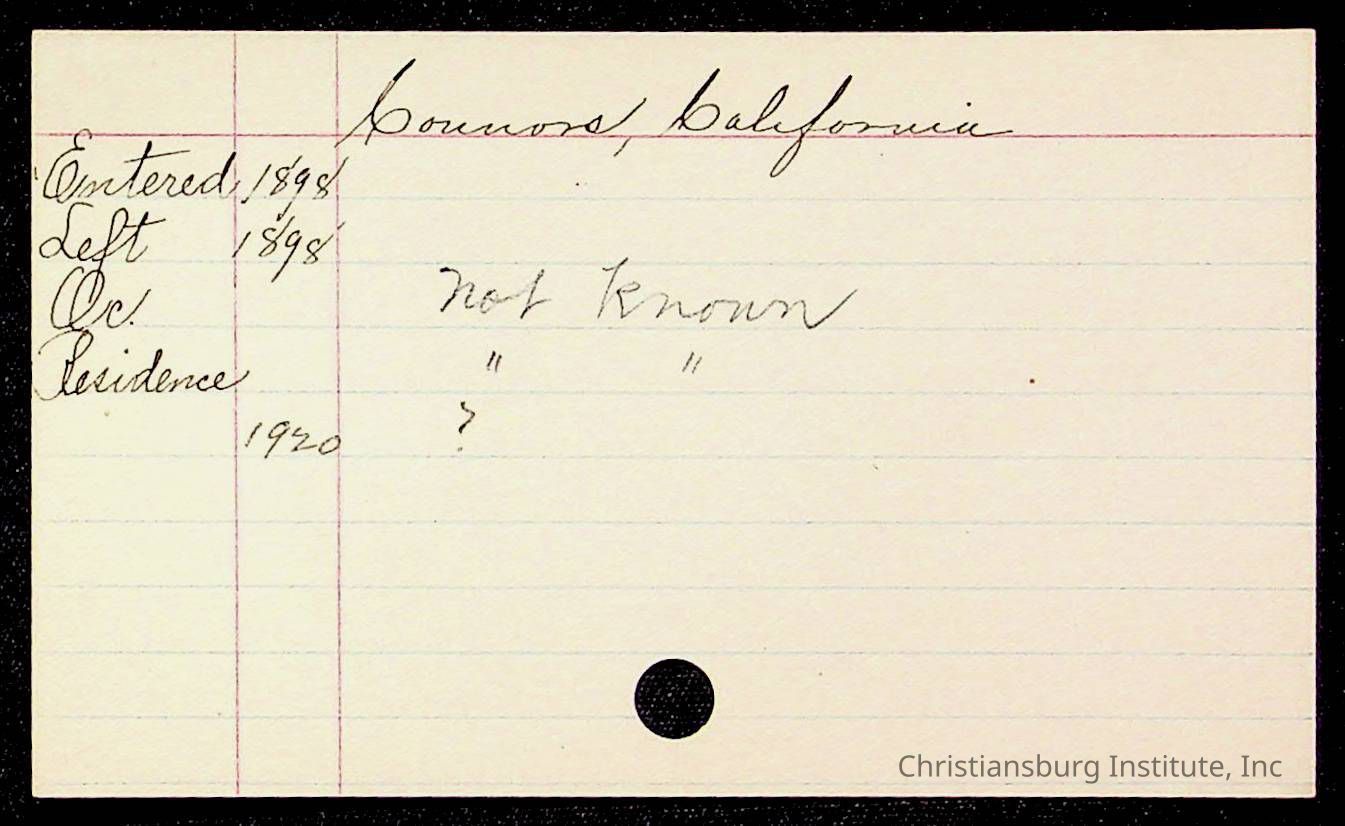 Connors, California
Entered 1898
Left 1898
Oc. Not Known
Residence " "
1920 ?
Christiansburg Institute, Inc